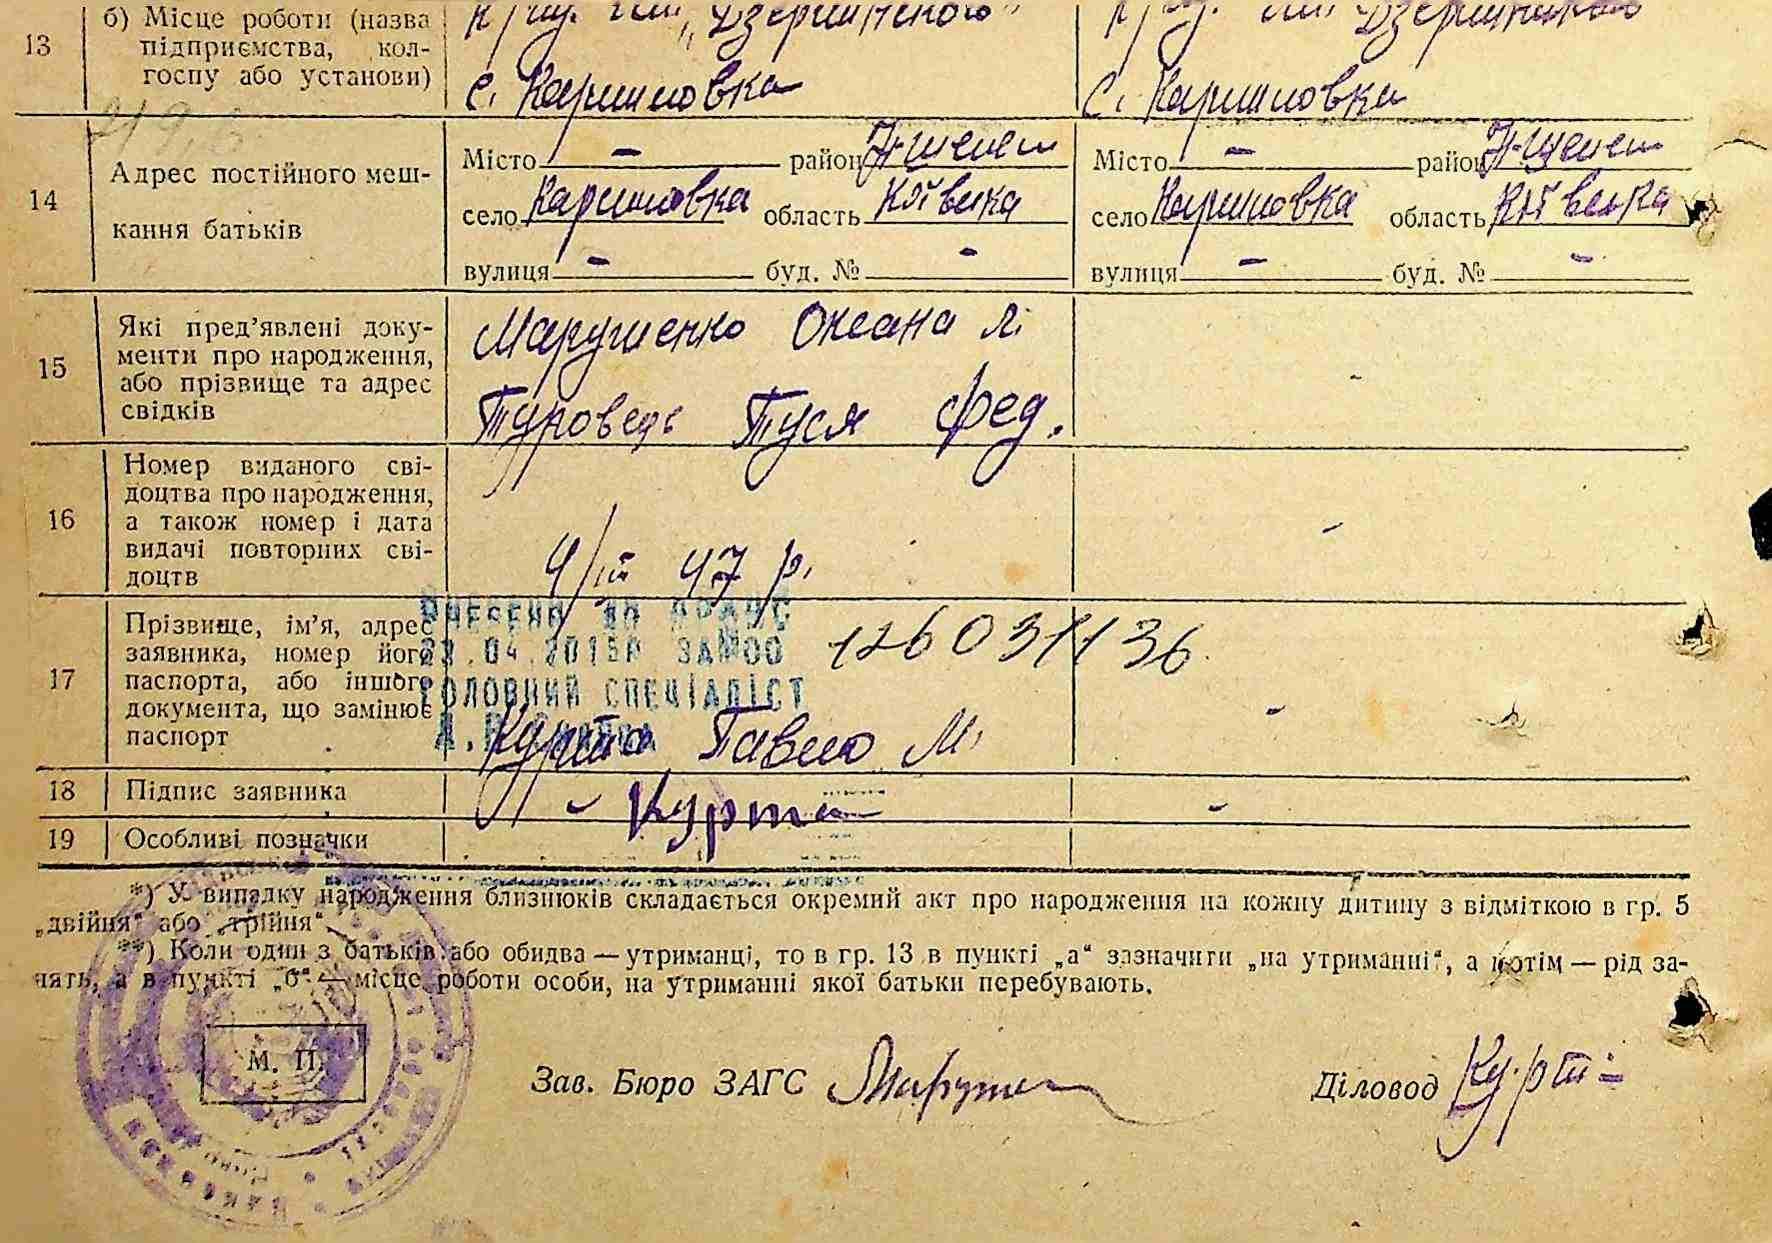 13
б) Місце роботи (назва
підприємства, кол-
госпу або установи)
с. Каришковка
с. Каришковка
14
Адрес постійного меш-
кання батьків
Місто — район
село Каришковка область Київська
вулиця — буд. № —
Місто — район
село Каришковка область Київська
вулиця — буд. № —
15
Які пред'явлені доку-
менти про народження,
або прізвище та адрес
свідків
Марушенко Оксана
Туровець Туся Фед.
-
16
Номер виданого сві-
доцтва про народження,
а також номер і дата
видачі повторних сві-
доцтв
4/ІІІ 47 р.
-
17
Прізвище, ім'я, адрес
заявника, номер його
паспорта, або іншого
документа, що замінює
паспорт
ВНЕСЕНО ДО ДРАЦС
.04.2015Р
ГОЛОВНИЙ СПЕЦІАЛІСТ
126031136
Курта Павло М.
-
18
Підпис заявника
- Курта
-
19
Особливі позначки
*) У випадку народження близнюків складається окремий акт про народження на кожну дитину з відміткою в гр. 5
„двійня“ або „трійня“.
**) Коли один з батьків або обидва — утриманці, то в гр. 13 в пункті „а“ зазначити „на утриманні“, а потім — рід за-
нять, а в пункті „б“ — місце роботи особи, на утриманні якої батьки перебувають.
М. П.
Зав. Бюро ЗАГС
Діловод Курта